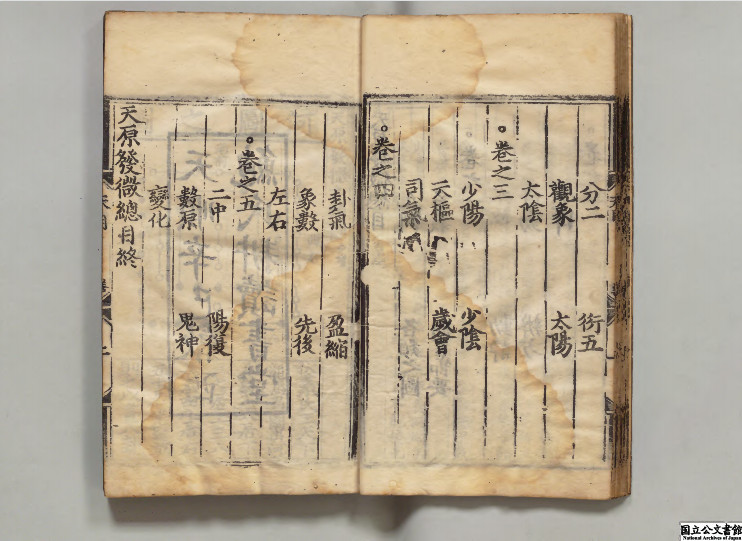 分二　衍五
觀象　太陽
太陰
。卷之三
少陽　少陰
天樞　歲會
司氣
。卷之四
卦氣　盈縮
象數　先後
左右
。卷之五
二中　陽復
數原　鬼神
變化
天原發微總目終
国立公文書館
National Archives of Japan